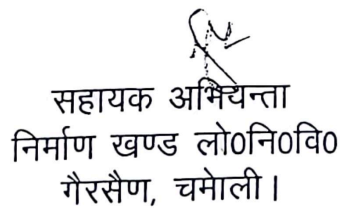 सहायक अभियन्ता
निर्माण खण्ड लो0नि0वि0
गैरसैण, चमोली।